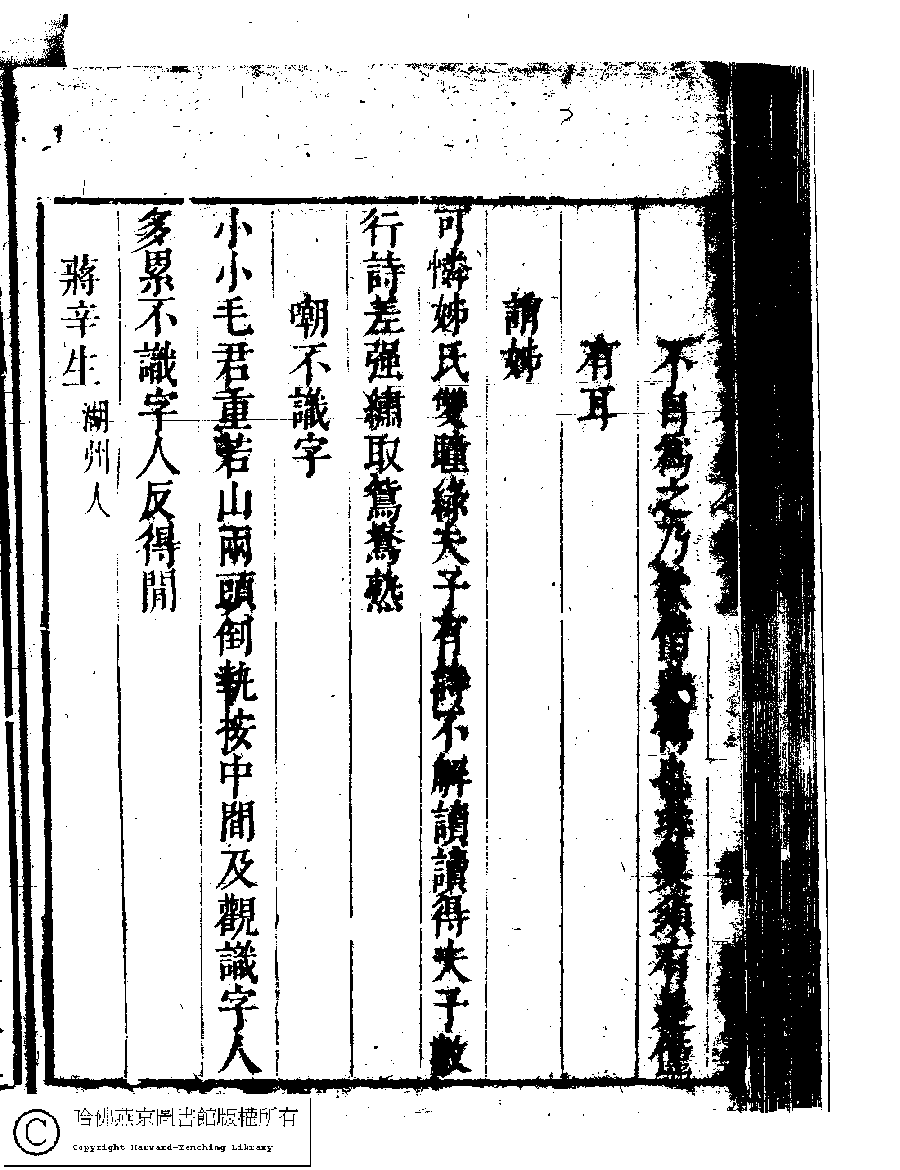 不自爲之乃
有耳
謂姊
可憐姊氏雙瞳綠夫子有詩不解讀讀得夫子數
行詩差强繡取鴛鴦熱
嘲不識字
小小毛君重若山兩頭倒執按中間及觀識字人
多累不識字人反得閒
蔣辛生 湖州人
哈佛燕京圖書館版權所有
Copyright Harvard-Yenching Library